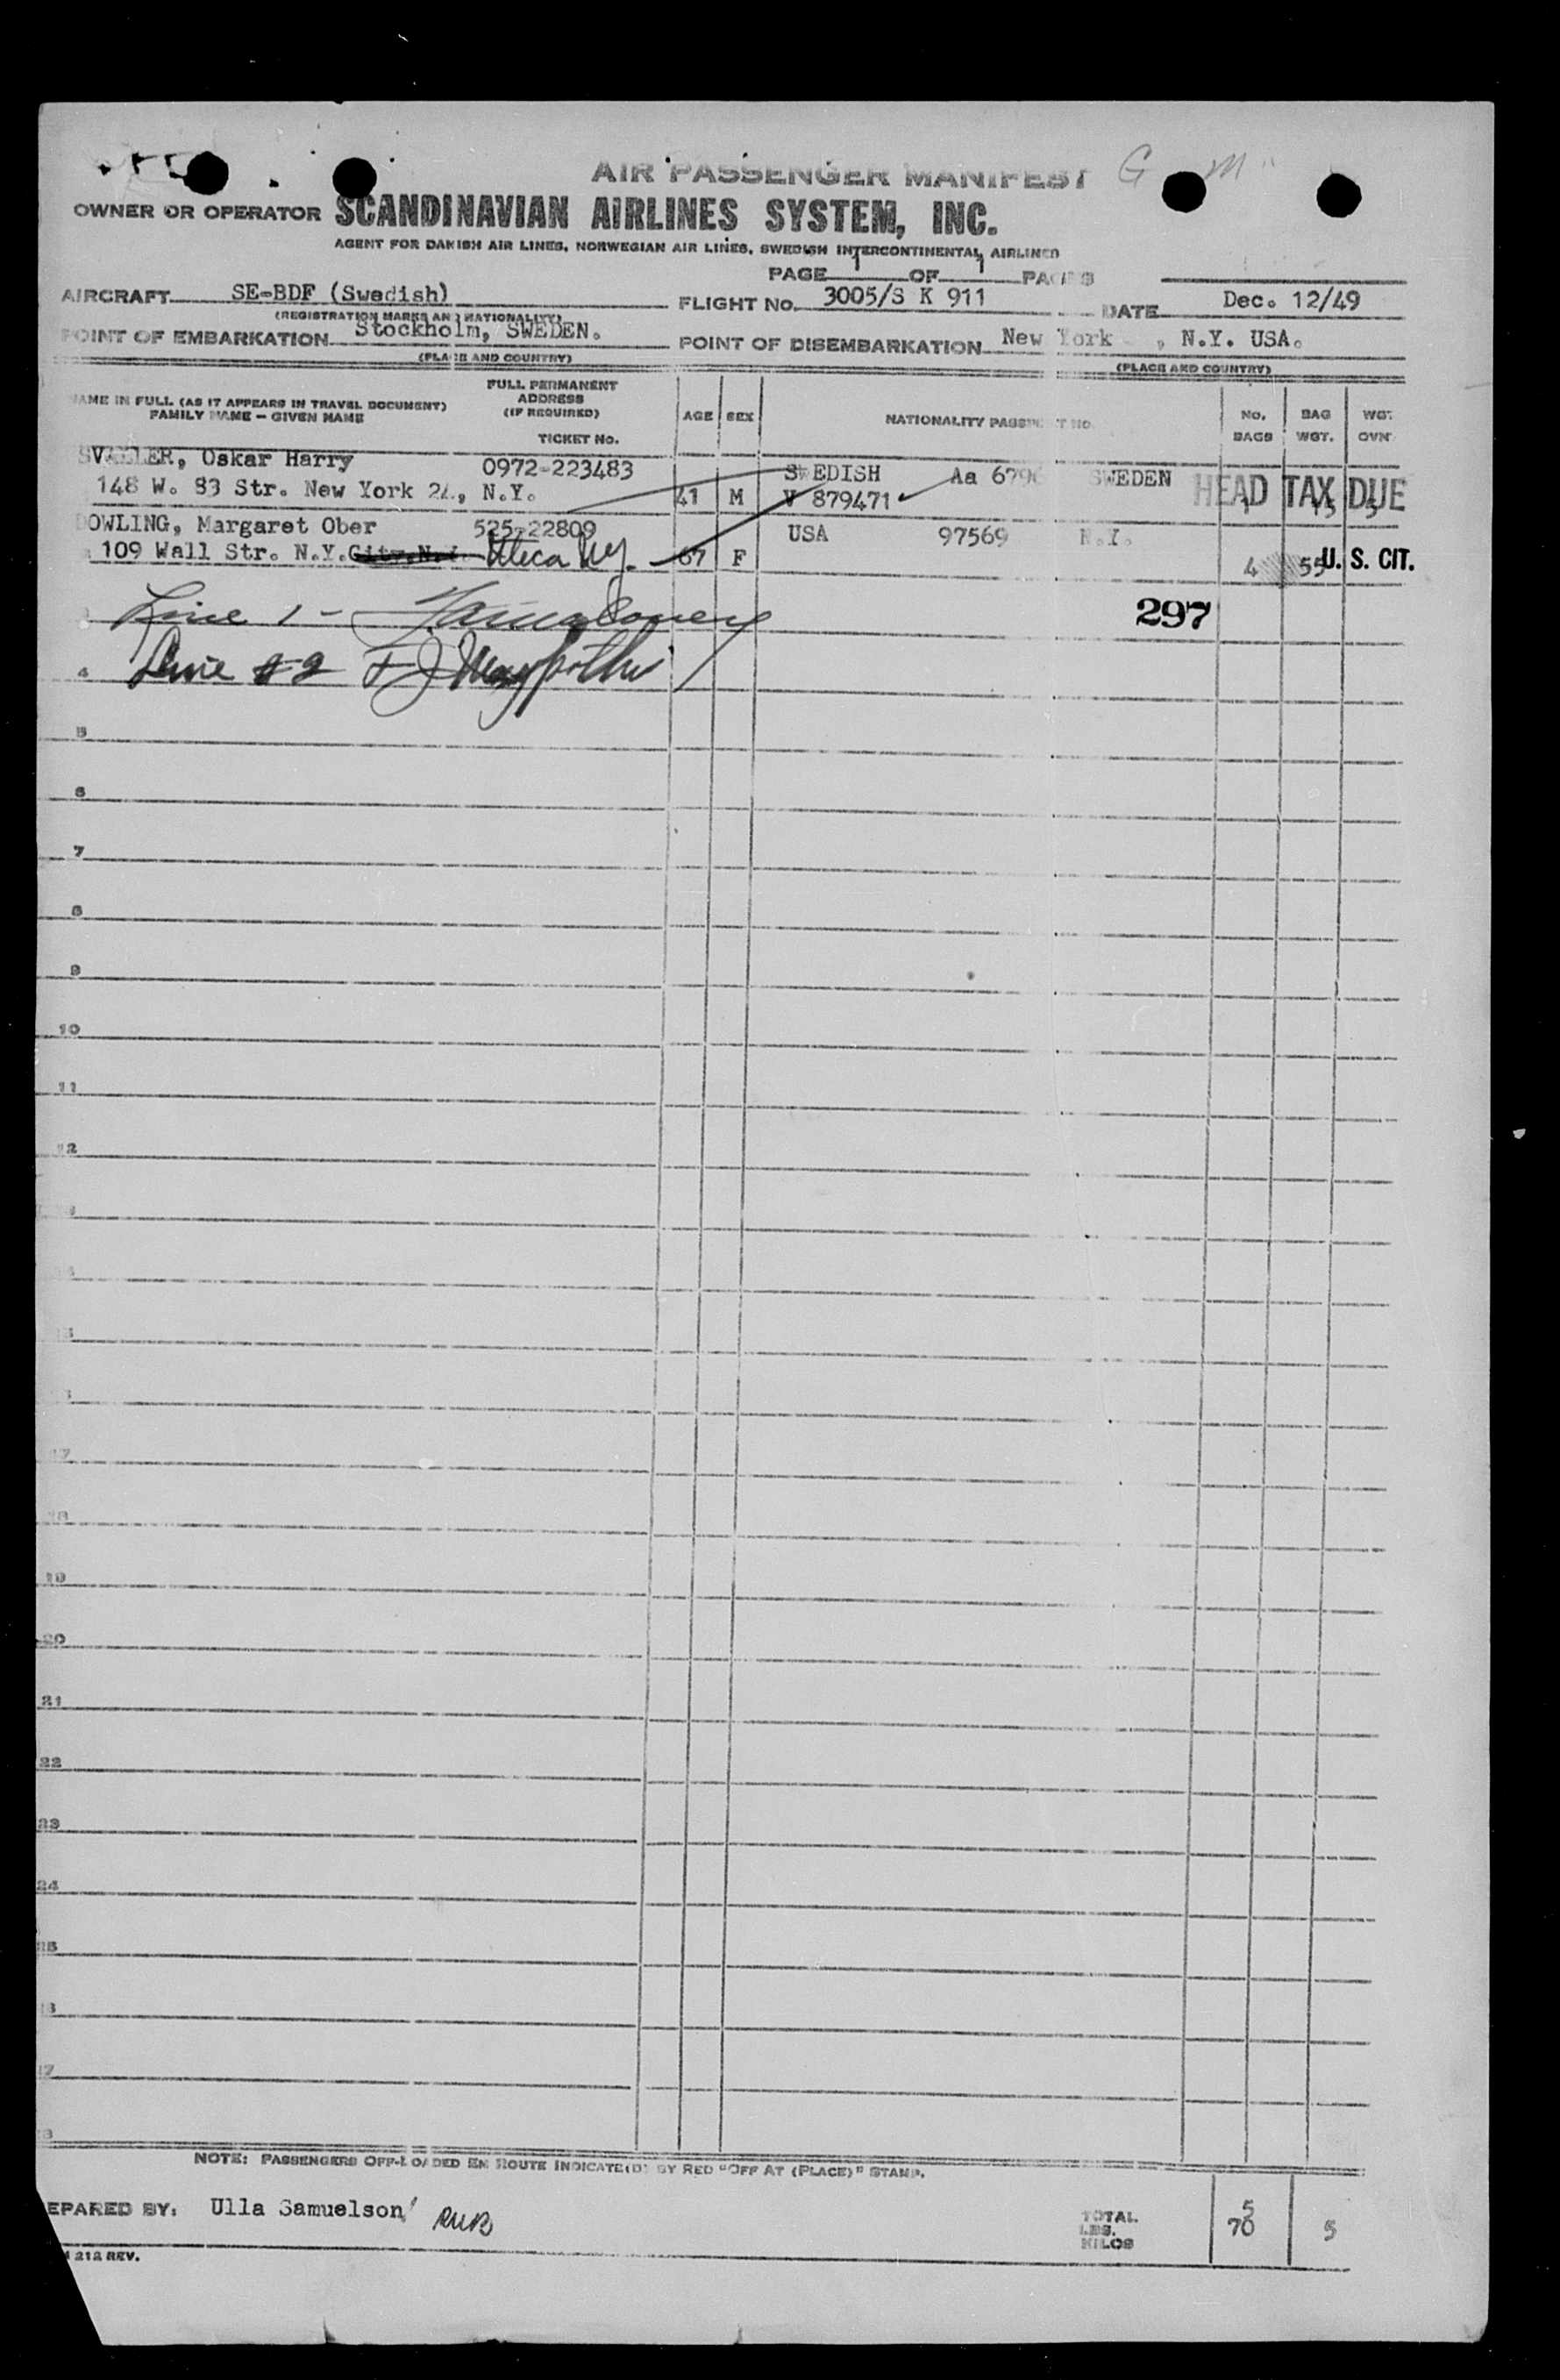 AIR PASSENGER MANIFEST G M
OWNER OR OPERATOR SCANDINAVIAN AIRLINES SYSTEM, INC.
AGENT FOR DANISH AIR LINES, NORWEGIAN AIR LINES, SWEDISH INTERCONTINENTAL AIRLINES
PAGE 1 OF 1 PAGES
AIRCRAFT SE-BDF (Swedish) FLIGHT No. 3005/S K 911 DATE Dec. 12/49
(REGISTRATION MARKS AND NATIONALITY)
POINT OF EMBARKATION Stockholm, SWEDEN. POINT OF DISEMBARKATION New York , N.Y. USA.
(PLACE AND COUNTRY) (PLACE AND COUNTRY)
NAME IN FULL (AS IT APPEARS IN TRAVEL DOCUMENT) FAMILY NAME - GIVEN NAME
FULL PERMANENT ADDRESS (IF REQUIRED)
TICKET No.
AGE SEX NATIONALITY PASSPORT No. No. BAGS BAG WGT. WGT. OVN
Oskar Harry 0972-223483 SWEDISH Aa 6796 SWEDEN
148 W. 83 Str. New York 24, N.Y. 41 M V 879471 HEAD TAX DUE
DOWLING, Margaret Ober 525-22809 USA 97569 N.Y.
109 Wall Str. N.Y. City, N.Y. Utica NY. 67 F 4 55 U. S. CIT.
Line 1 - 297
4 Line 2
5
6
7
8
9
10
11
12
17
18
19
20
21
22
23
24
25
NOTE: PASSENGERS OFF-LOADED EN ROUTE INDICATE(D) BY RED "OFF AT (PLACE)" STAMP.
EPARED BY: Ulla Samuelson TOTAL 5
LBS. 70 5
KILOS
212 REV.